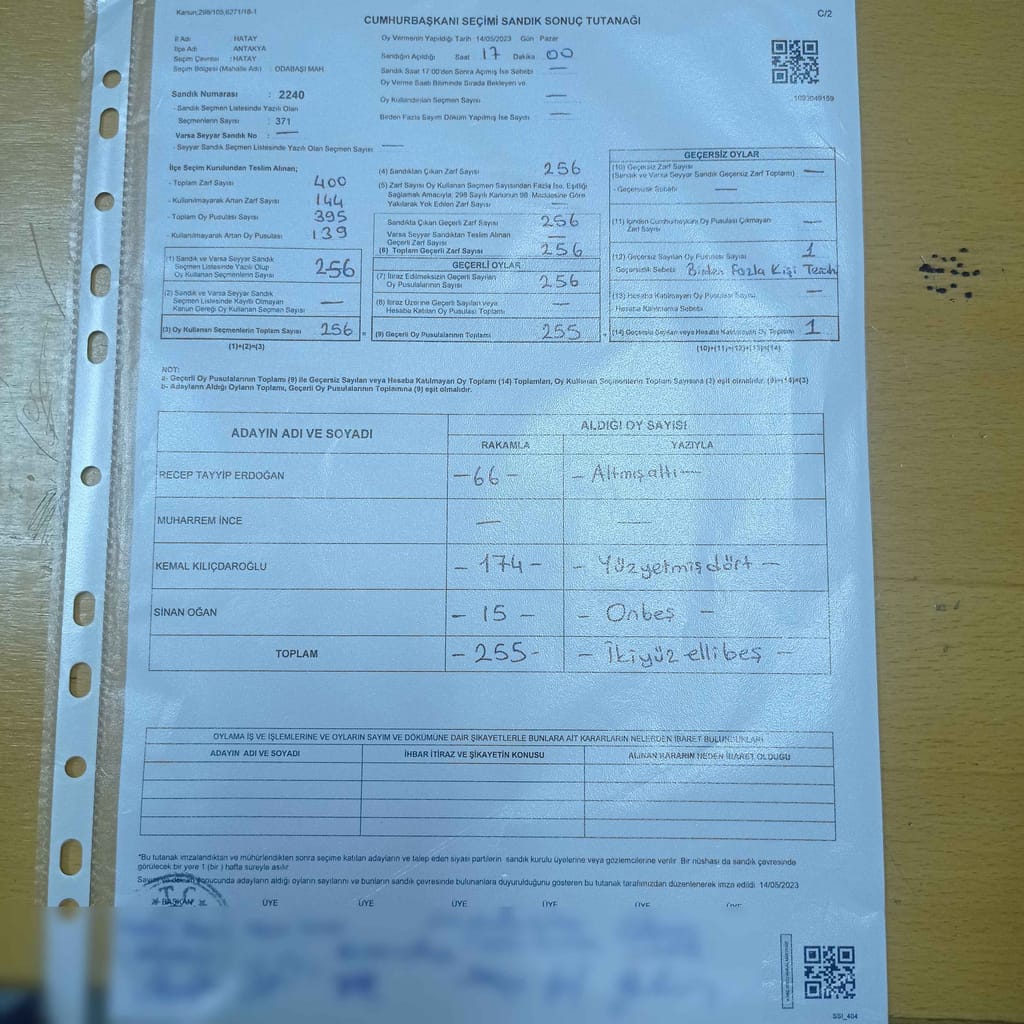 Kanun;298/105,6271/18-1
C/2
CUMHURBAŞKANI SEÇİMİ SANDIK SONUÇ TUTANAĞI
İl Adı : HATAY
İlçe Adı : ANTAKYA
Seçim Çevresi : HATAY
Seçim Bölgesi (Mahalle Adı) : ODABAŞI MAH.
Sandık Numarası : 2240
- Sandık Seçmen Listesinde Yazılı Olan
Seçmenlerin Sayısı : 371
Varsa Seyyar Sandık No : —
- Seyyar Sandık Seçmen Listesinde Yazılı Olan Seçmen Sayısı —
Oy Vermenin Yapıldığı Tarih 14/05/2023 Gün Pazar
Sandığın Açıldığı Saat 17 Dakika 00
Sandık Saat 17:00'den Sonra Açılmış İse Sebebi —
Oy Verme Saati Bitiminde Sırada Bekleyen ve
Oy Kullandırılan Seçmen Sayısı —
Birden Fazla Sayım Döküm Yapılmış İse Sayısı —
1093049159
İlçe Seçim Kurulundan Teslim Alınan;
- Toplam Zarf Sayısı 400
- Kullanılmayarak Artan Zarf Sayısı 144
- Toplam Oy Pusulası Sayısı 395
- Kullanılmayarak Artan Oy Pusulası 139
(1) Sandık ve Varsa Seyyar Sandık
Seçmen Listesinde Yazılı Olup
Oy Kullanan Seçmenlerin Sayısı 256
(2) Sandık ve Varsa Seyyar Sandık
Seçmen Listesinde Kayıtlı Olmayan
Kanun Gereği Oy Kullanan Seçmenler —
(3) Oy Kullanan Seçmenlerin Toplam Sayısı 256
(1)+(2)=(3)
(4) Sandıktan Çıkan Zarf Sayısı 256
(5) Zarf Sayısı Oy Kullanan Seçmen Sayısından Fazla İse, Eşitliği
Sağlamak Amacıyla, 298 Sayılı Kanunun 98. Maddesine Göre
Yakılarak Yok Edilen Zarf Sayısı —
Sandıkta Çıkan Geçerli Zarf Sayısı 256
Varsa Seyyar Sandıktan Teslim Alınan
Geçerli Zarf Sayısı —
(6) Toplam Geçerli Zarf Sayısı 256
GEÇERLİ OYLAR
(7) İtiraz Edilmeksizin Geçerli Sayılan
Oy Pusulasının Sayısı 256
(8) İtiraz Üzerine Geçerli Sayılan veya
Hesaba Katılan Oy Pusulası Toplamı —
(9) Geçerli Oy Pusulalarının Toplamı 255
GEÇERSİZ OYLAR
(10) Geçersiz Zarf Sayısı
(Sandık ve Varsa Seyyar Sandık Geçersiz Zarf Toplamı) —
- Geçersizlik Sebebi —
(11) İçinden Cumhurbaşkanı Oy Pusulası Çıkmayan
Zarf Sayısı —
(12) Geçersiz Sayılan Oy Pusulası Sayısı 1
Geçersizlik Sebebi Birden Fazla Kişi Tercih
(13) Hesaba Katılmayan Oy Pusulası Sayısı —
Hesaba Katılmama Sebebi
(14) Geçersiz Sayılan veya Hesaba Katılmayan Oy Toplamı 1
(10)+(11)+(12)+(13)=(14)
NOT:
a- Geçerli Oy Pusulalarının Toplamı (9) ile Geçersiz Sayılan veya Hesaba Katılmayan Oy Toplamı (14) Toplamları, Oy Kullanan Seçmenlerin Toplam Sayısına (3) eşit olmalıdır. (9)+(14)=(3)
b- Adayların Aldığı Oyların Toplamı, Geçerli Oy Pusulalarının Toplamına (9) eşit olmalıdır.
ADAYIN ADI VE SOYADI
ALDIĞI OY SAYISI
RAKAMLA YAZIYLA
RECEP TAYYİP ERDOĞAN -66- - Altmışaltı -
MUHARREM İNCE — —
KEMAL KILIÇDAROĞLU - 174 - - Yüzyetmişdört -
SİNAN OĞAN - 15 - - Onbeş -
TOPLAM - 255 - - İkiyüz ellibeş -
OYLAMA İŞ VE İŞLEMLERİNE VE OYLARIN SAYIM VE DÖKÜMÜNE DAİR ŞİKAYETLERLE BUNLARA AİT KARARLARIN NELERDEN İBARET BULUNDUKLARI
ADAYIN ADI VE SOYADI İHBAR İTİRAZ VE ŞİKAYETİN KONUSU ALINAN KARARIN NEDEN İBARET OLDUĞU
"Bu tutanak imzalandıktan ve mühürlendikten sonra seçime katılan adayların ve talep eden siyasi partilerin sandık kurulu üyelerine veya gözlemcilerine verilir. Bir nüshası da sandık çevresinde
görülecek bir yere 1 (bir) hafta süreyle asılır.
Sayım ve döküm sonucunda adayların aldığı oyların sayılarını ve bunların sandık çevresinde bulunanlara duyurulduğunu gösteren bu tutanak tarafımızdan düzenlenerek imza edildi. 14/05/2023
T.C.
BAŞKAN ÜYE ÜYE ÜYE ÜYE ÜYE ÜYE
SSI_404